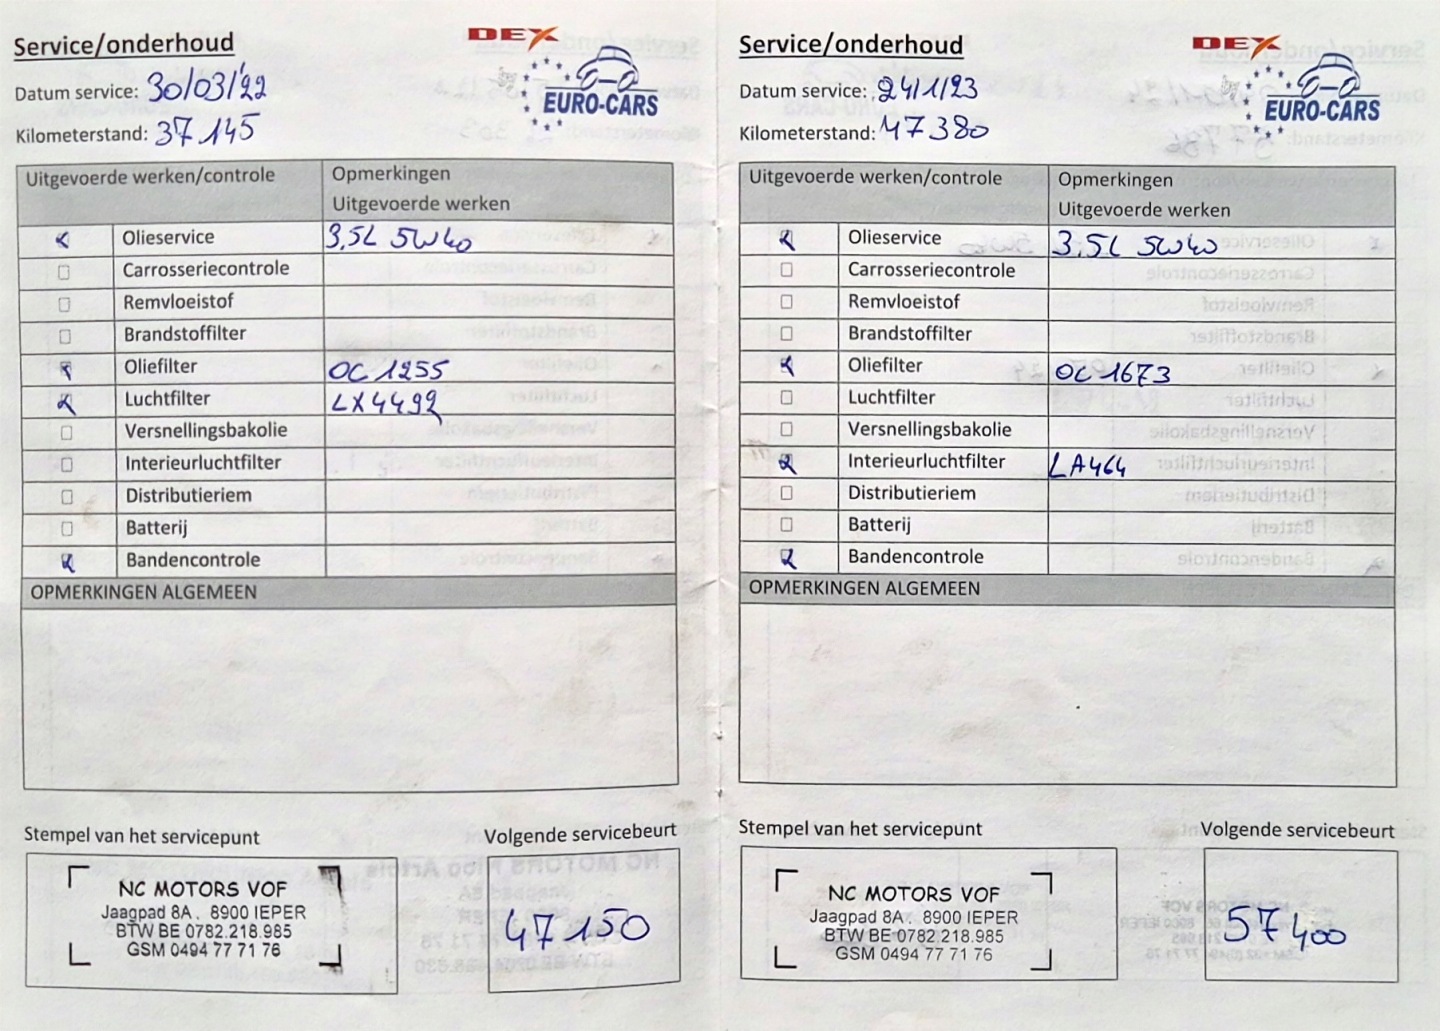 Service/onderhoud
DEX
EURO-CARS
Datum service: 30/03/'22
Kilometerstand: 37.145
Uitgevoerde werken/controle
Opmerkingen
Uitgevoerde werken
Olieservice 3,5L 5W40
Carrosseriecontrole
Remvloeistof
Brandstoffilter
Oliefilter OC 1255
Luchtfilter LX4492
Versnellingsbakolie
Interieurluchtfilter
Distributieriem
Batterij
Bandencontrole
OPMERKINGEN ALGEMEEN
Stempel van het servicepunt
Volgende servicebeurt
NC MOTORS VOF
Jaagpad 8A . 8900 IEPER
BTW BE 0782.218.985
GSM 0494 77 71 76
47 150
Service/onderhoud
DEX
EURO-CARS
Datum service: 24/1/23
Kilometerstand: 47380
Uitgevoerde werken/controle
Opmerkingen
Uitgevoerde werken
Olieservice 3,5L 5W40
Carrosseriecontrole
Remvloeistof
Brandstoffilter
Oliefilter OC 1673
Luchtfilter
Versnellingsbakolie
Interieurluchtfilter LA464
Distributieriem
Batterij
Bandencontrole
OPMERKINGEN ALGEMEEN
Stempel van het servicepunt
Volgende servicebeurt
NC MOTORS VOF
Jaagpad 8A . 8900 IEPER
BTW BE 0782.218.985
GSM 0494 77 71 76
57 400